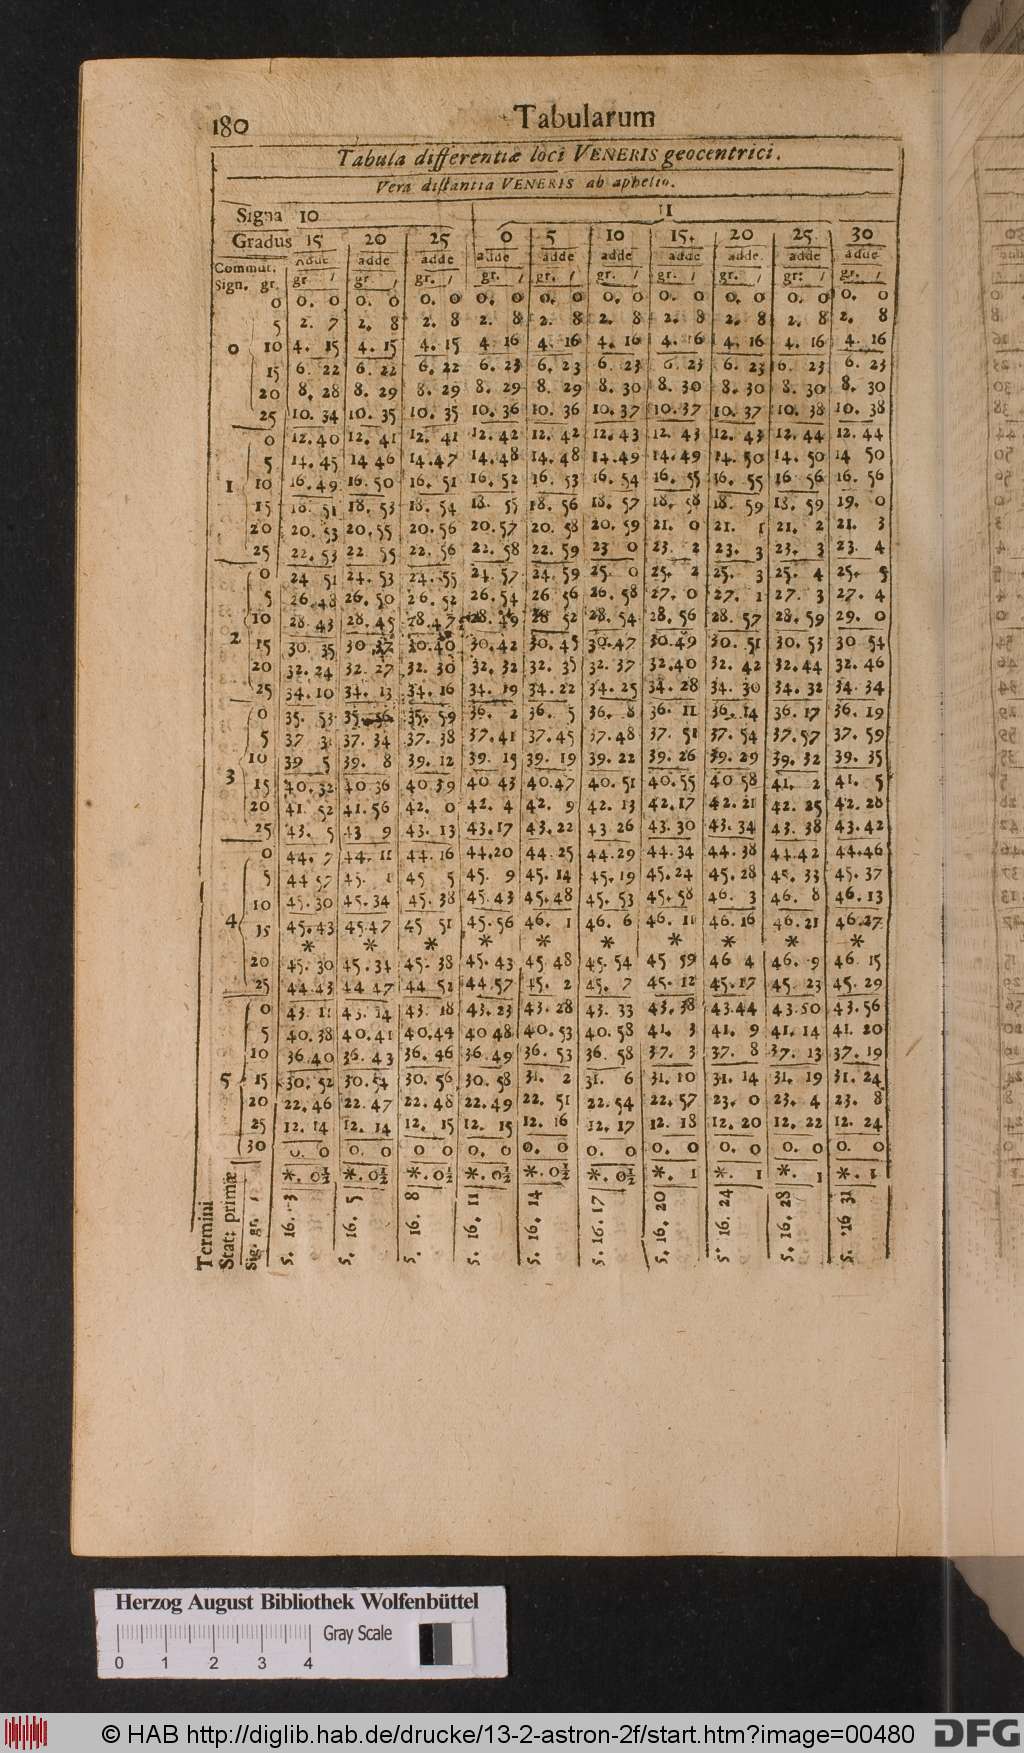 180 Tabularum
Tabula differentiæ loci VENERIS geocentrici.
Vera distantia VENERIS ab aphelio.
Signa 10 11
Gradus 15 20 25 0 5 10 15. 20 25 30
Commut. adde adde adde adde adde adde adde adde adde adde
Sign. gr. gr. / gr. / gr. / gr. / gr. / gr. / gr. / gr. / gr. / gr. /
0 0. 0 0. 0 0. 0 0. 0 0. 0 0. 0 0. 0 0. 0 0. 0 0. 0
5 2. 7 2. 8 2. 8 2. 8 2. 8 2. 8 2. 8 2. 8 2. 8 2. 8
0 10 4. 15 4. 15 4. 15 4 16 4. 16 4. 16 4. 16 4. 16 4. 16 4. 16
15 6. 22 6. 22 6. 22 6. 23 6. 23 6. 23 6. 23 6. 23 6. 23 6. 23
20 8. 28 8. 29 8. 29 8. 29 8. 29 8. 30 8. 30 8. 30 8. 30 8. 30
25 10. 34 10. 35 10. 35 10. 36 10. 36 10. 37 10. 37 10. 37 10. 38 10. 38
0 12. 40 12. 41 12. 41 12. 42 12. 42 12. 43 12. 43 12. 43 12. 44 12. 44
5 14. 45 14 46 14. 47 14. 48 14. 48 14. 49 14. 49 14. 50 14. 50 14 50
1 10 16. 49 16. 50 16. 51 16. 52 16. 53 16. 54 16. 55 16. 55 16 56 16. 56
15 18. 51 18. 53 18. 54 18. 55 18. 56 18. 57 18. 58 18. 59 18. 59 19. 0
20 20. 53 20. 55 20. 56 20. 57 20. 58 20. 59 21. 0 21. 1 21. 2 21. 3
25 22. 53 22 55 22. 56 22. 58 22. 59 23 0 23. 2 23. 3 23. 3 23. 4
0 24 51 24. 53 24. 55 24. 57 24. 59 25. 0 25. 2 25. 3 25. 4 25. 5
5 26. 48 26. 50 26. 52 26. 54 26 56 26. 58 27. 0 27. 1 27. 3 27. 4
10 28. 43 28. 45 28. 47 28. 49 28 52 28. 54 28. 56 28. 57 28. 59 29. 0
2 15 30. 35 30 37 30. 40 30. 42 30. 45 30. 47 30. 49 30. 51 30. 53 30 54
20 32. 24 32. 27 32. 30 32. 32 32. 35 32. 37 32. 40 32. 42 32. 44 32. 46
25 34. 10 34. 13 34. 16 34. 19 34. 22 34. 25 34. 28 34. 30 34. 32 34. 34
0 35. 53 35. 56 35. 59 36. 2 36. 5 36. 8 36. 11 36. 14 36. 17 36. 19
5 37 31 37. 34 37. 38 37. 41 37. 45 37. 48 37. 51 37. 54 37. 57 37. 59
10 39 5 39. 8 39. 12 39. 15 39. 19 39. 22 39. 26 39. 29 39. 32 39. 35
3 15 40. 32 40 36 40 39 40 43 40. 47 40. 51 40. 55 40 58 41. 2 41. 5
20 41. 52 41. 56 42. 0 42. 4 42. 9 42. 13 42. 17 42. 21 42. 25 42. 28
25 43. 5 43 9 43. 13 43. 17 43. 22 43 26 43. 30 43. 34 43. 38 43. 42
0 44. 7 44. 11 44. 16 44. 20 44 25 44. 29 44. 34 44. 38 44. 42 44. 46
5 44 57 45. 1 45 5 45. 9 45. 14 45. 19 45. 24 45. 28 45. 33 45. 37
10 45. 30 45. 34 45. 38 45. 43 45. 48 45. 53 45. 58 46. 3 46. 8 46. 13
4 15 45. 43 45 47 45 51 45. 56 46. 1 46. 6 46. 11 46. 16 46. 21 46. 27
* * * * * * * * * *
20 45. 30 45. 34 45. 38 45. 43 45 48 45. 54 45 59 46 4 46. 9 46 15
25 44. 43 44 47 44 52 44. 57 45. 2 45. 7 45. 12 45. 17 45. 23 45. 29
0 43. 11 43. 14 43. 18 43. 23 43. 28 43. 33 43. 38 43. 44 43. 50 43. 56
5 40. 38 40. 41 40. 44 40 48 40. 53 40. 58 41. 3 41. 9 41. 14 41. 20
10 36. 40 36. 43 36. 46 36. 49 36. 53 36. 58 37. 3 37. 8 37. 13 37. 19
5 15 30. 52 30. 54 30. 56 30. 58 31. 2 31. 6 31. 10 31. 14 31. 19 31. 24
20 22. 46 22. 47 22. 48 22. 49 22. 51 22. 54 22. 57 23. 0 23. 4 23. 8
25 12. 14 12. 14 12. 15 12. 15 12. 16 12. 17 12. 18 12. 20 12. 22 12. 24
30 0. 0 0. 0 0 0 0. 0 0. 0 0. 0 0. 0 0. 0 0. 0 0. 0
*. 0½ *. 0½ *. 0½ *. 0½ *. 0½ *. 0½ *. 1 *. 1 *. 1 *. 1
Termini
Stat: primæ
Sig. gr. /
5. 16. 3 5. 16. 5 5. 16. 8 5. 16. 11 5. 16. 14 5. 16. 17 5. 16. 20 5. 16. 24 5. 16. 28 5. 16 31
Herzog August Bibliothek Wolfenbüttel
Gray Scale
0 1 2 3 4
© HAB http://diglib.hab.de/drucke/13-2-astron-2f/start.htm?image=00480 DFG